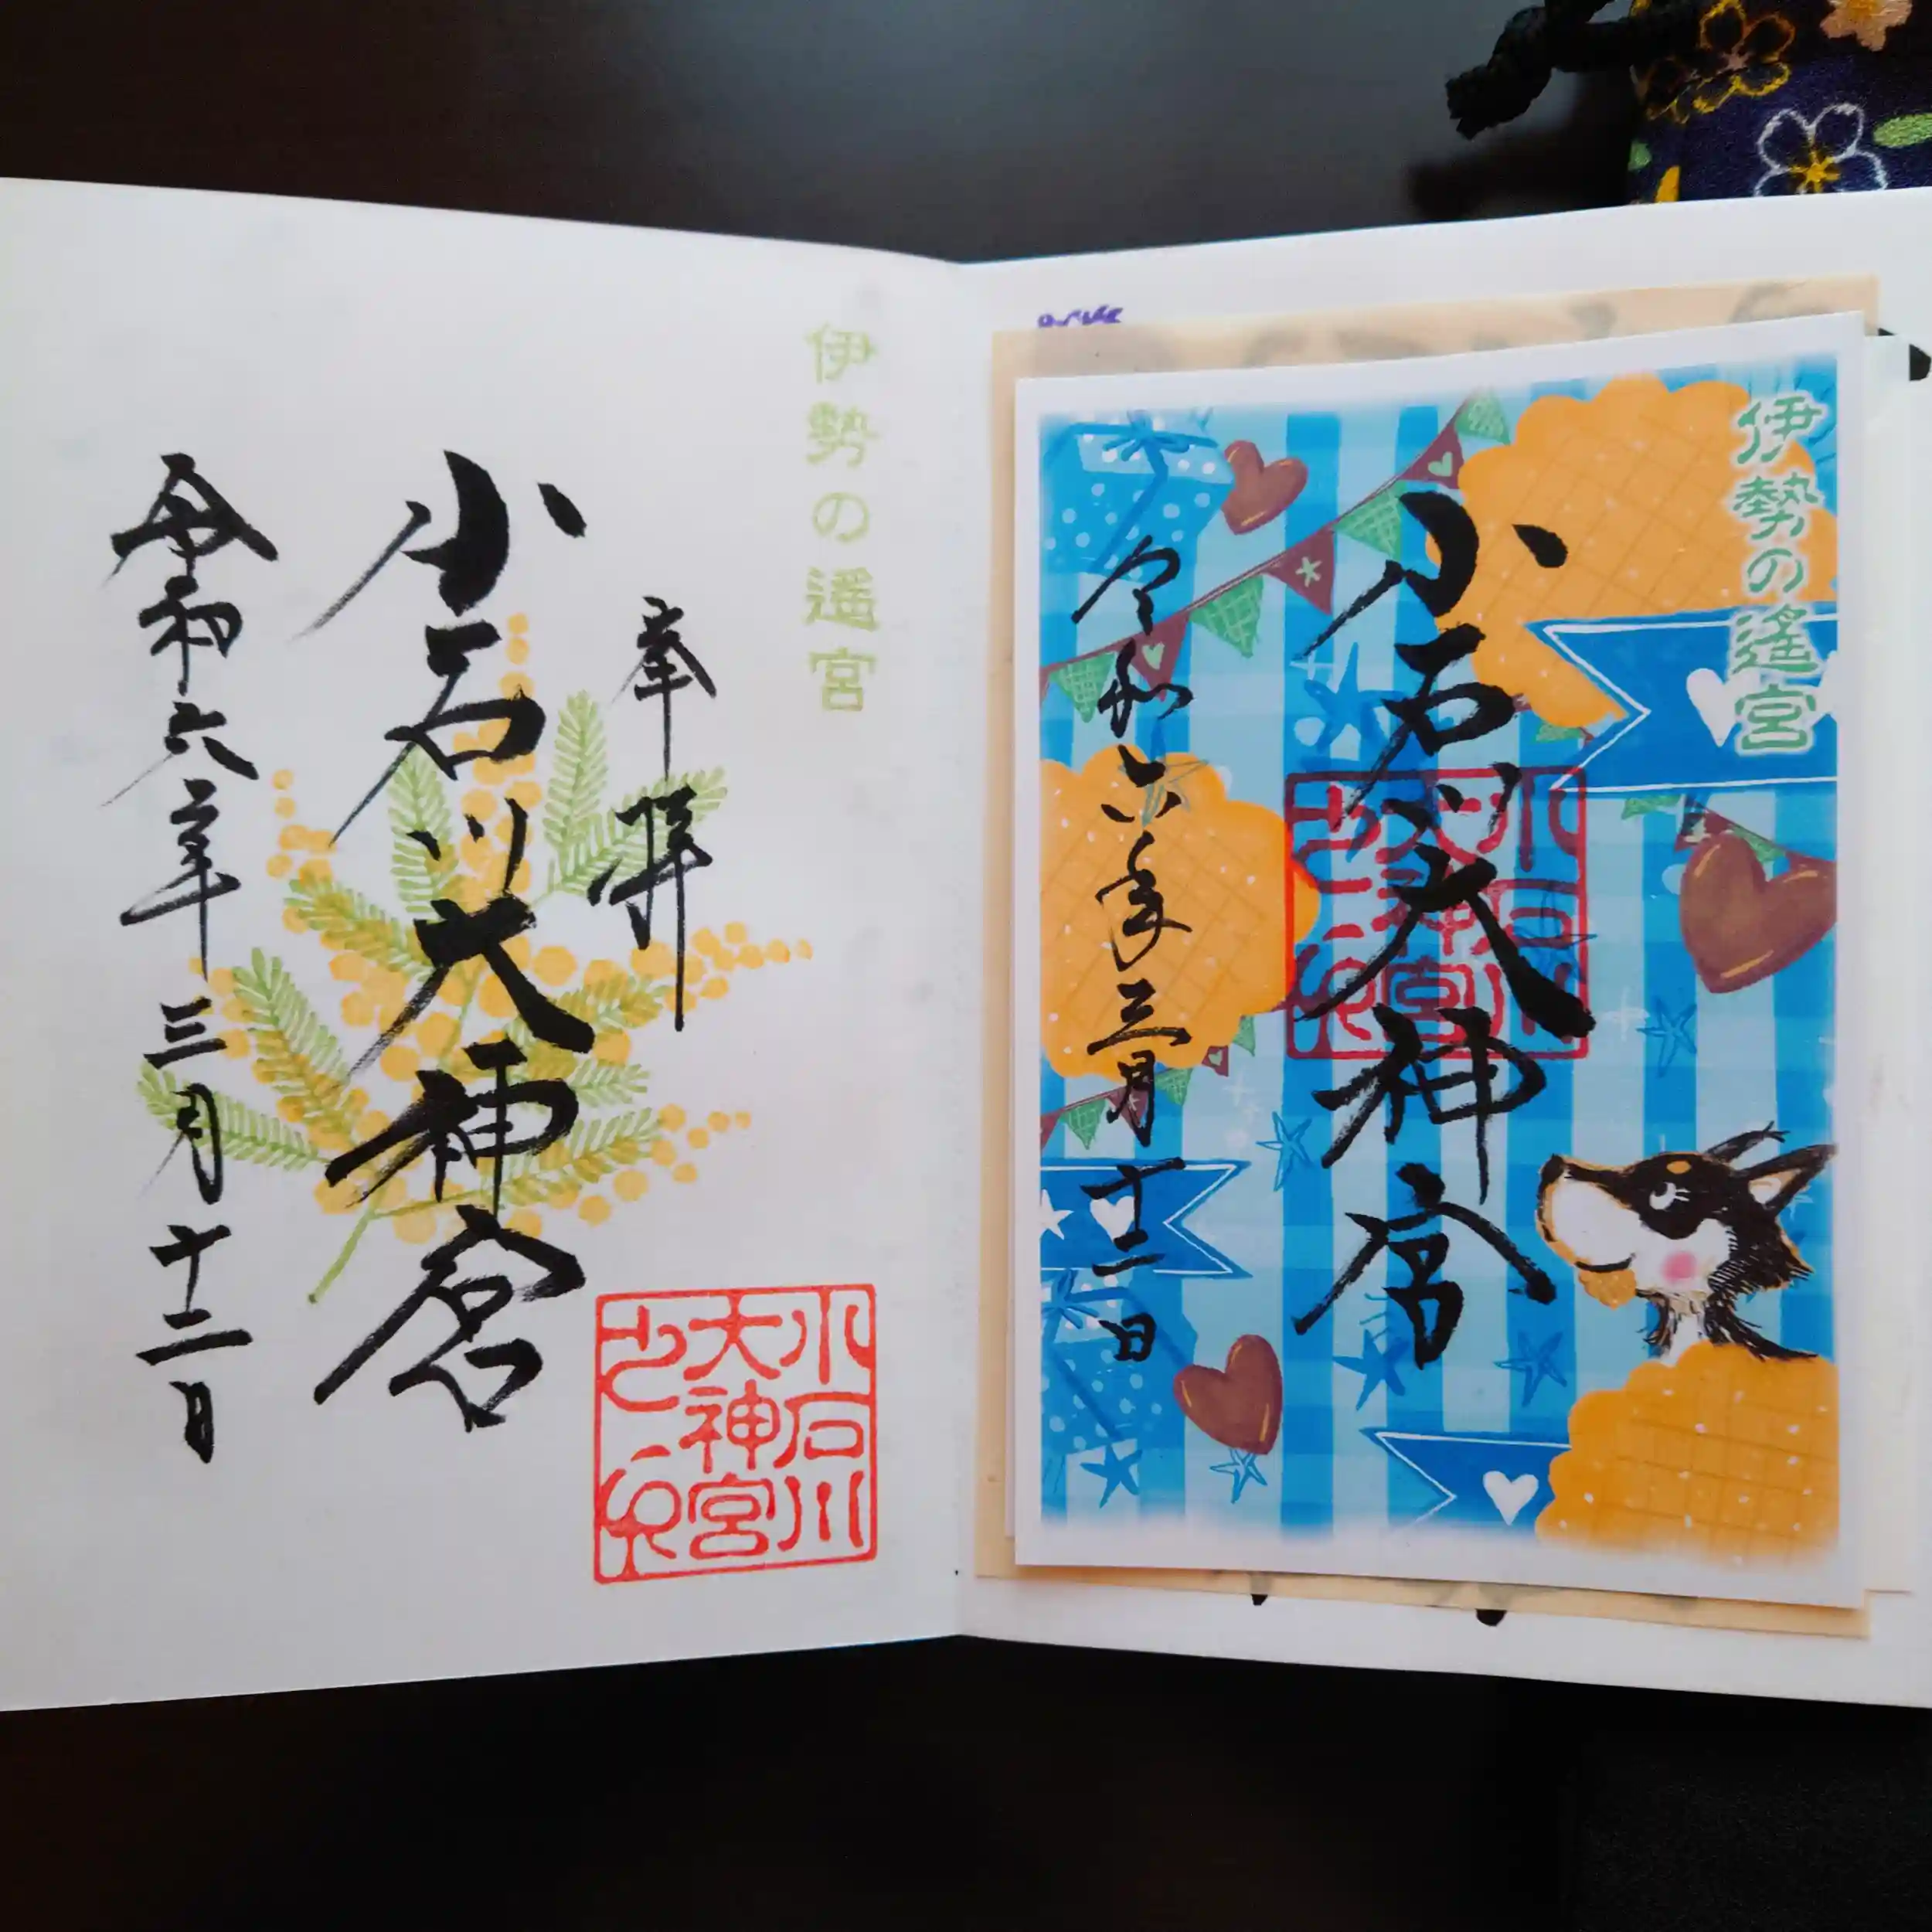 伊勢の遙宮
小石川大神宮
小石川
大神宮
之印
令和六年三月十二日
伊勢の遙宮
奉拝
小石川大神宮
令和六年三月十二日
小石川
大神宮
之印